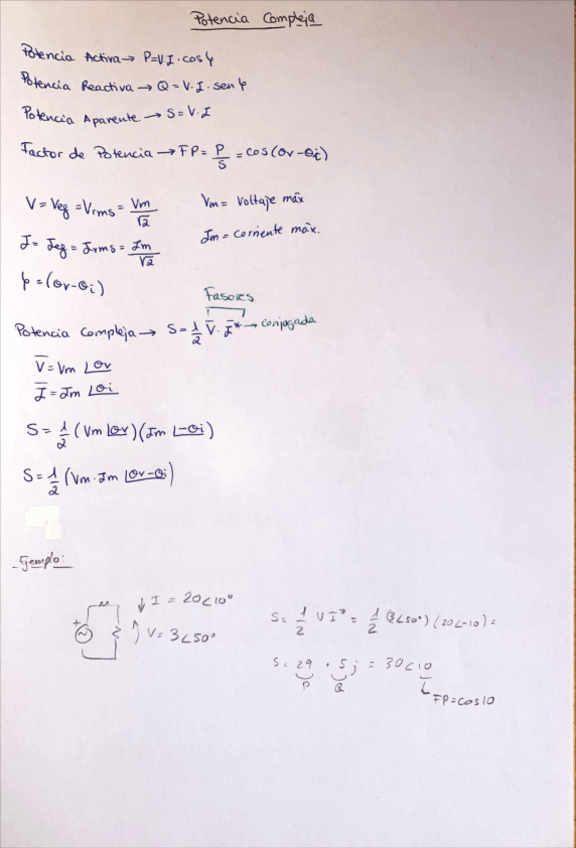 Potencia Compleja
Potencia Activa → P=V.I.cosφ
Potencia Reactiva → Q = V.I.senφ
Potencia Aparente → S = V.I
Factor de Potencia → FP = P/S = cos(θv-θi)
V = Vef = Vrms = Vm/√2
Vm = Voltaje máx
I = Ief = Irms = Im/√2
Im = corriente máx.
φ = (θv-θi)
Fasores
Potencia Compleja → S = 1/2 V̅ · I̅* → conjugada
V̅ = Vm ∠θv
I̅ = Im ∠θi
S = 1/2 (Vm ∠θv)(Im ∠-θi)
S = 1/2 (Vm·Im ∠θv-θi)
- Ejemplo:
↓ I = 20∠10°
+
V = 3∠50°
S = 1/2 V I* = 1/2 (3∠50°)(20∠-10) =
S = 29 + 5j = 30∠10
P Q
FP = cos10